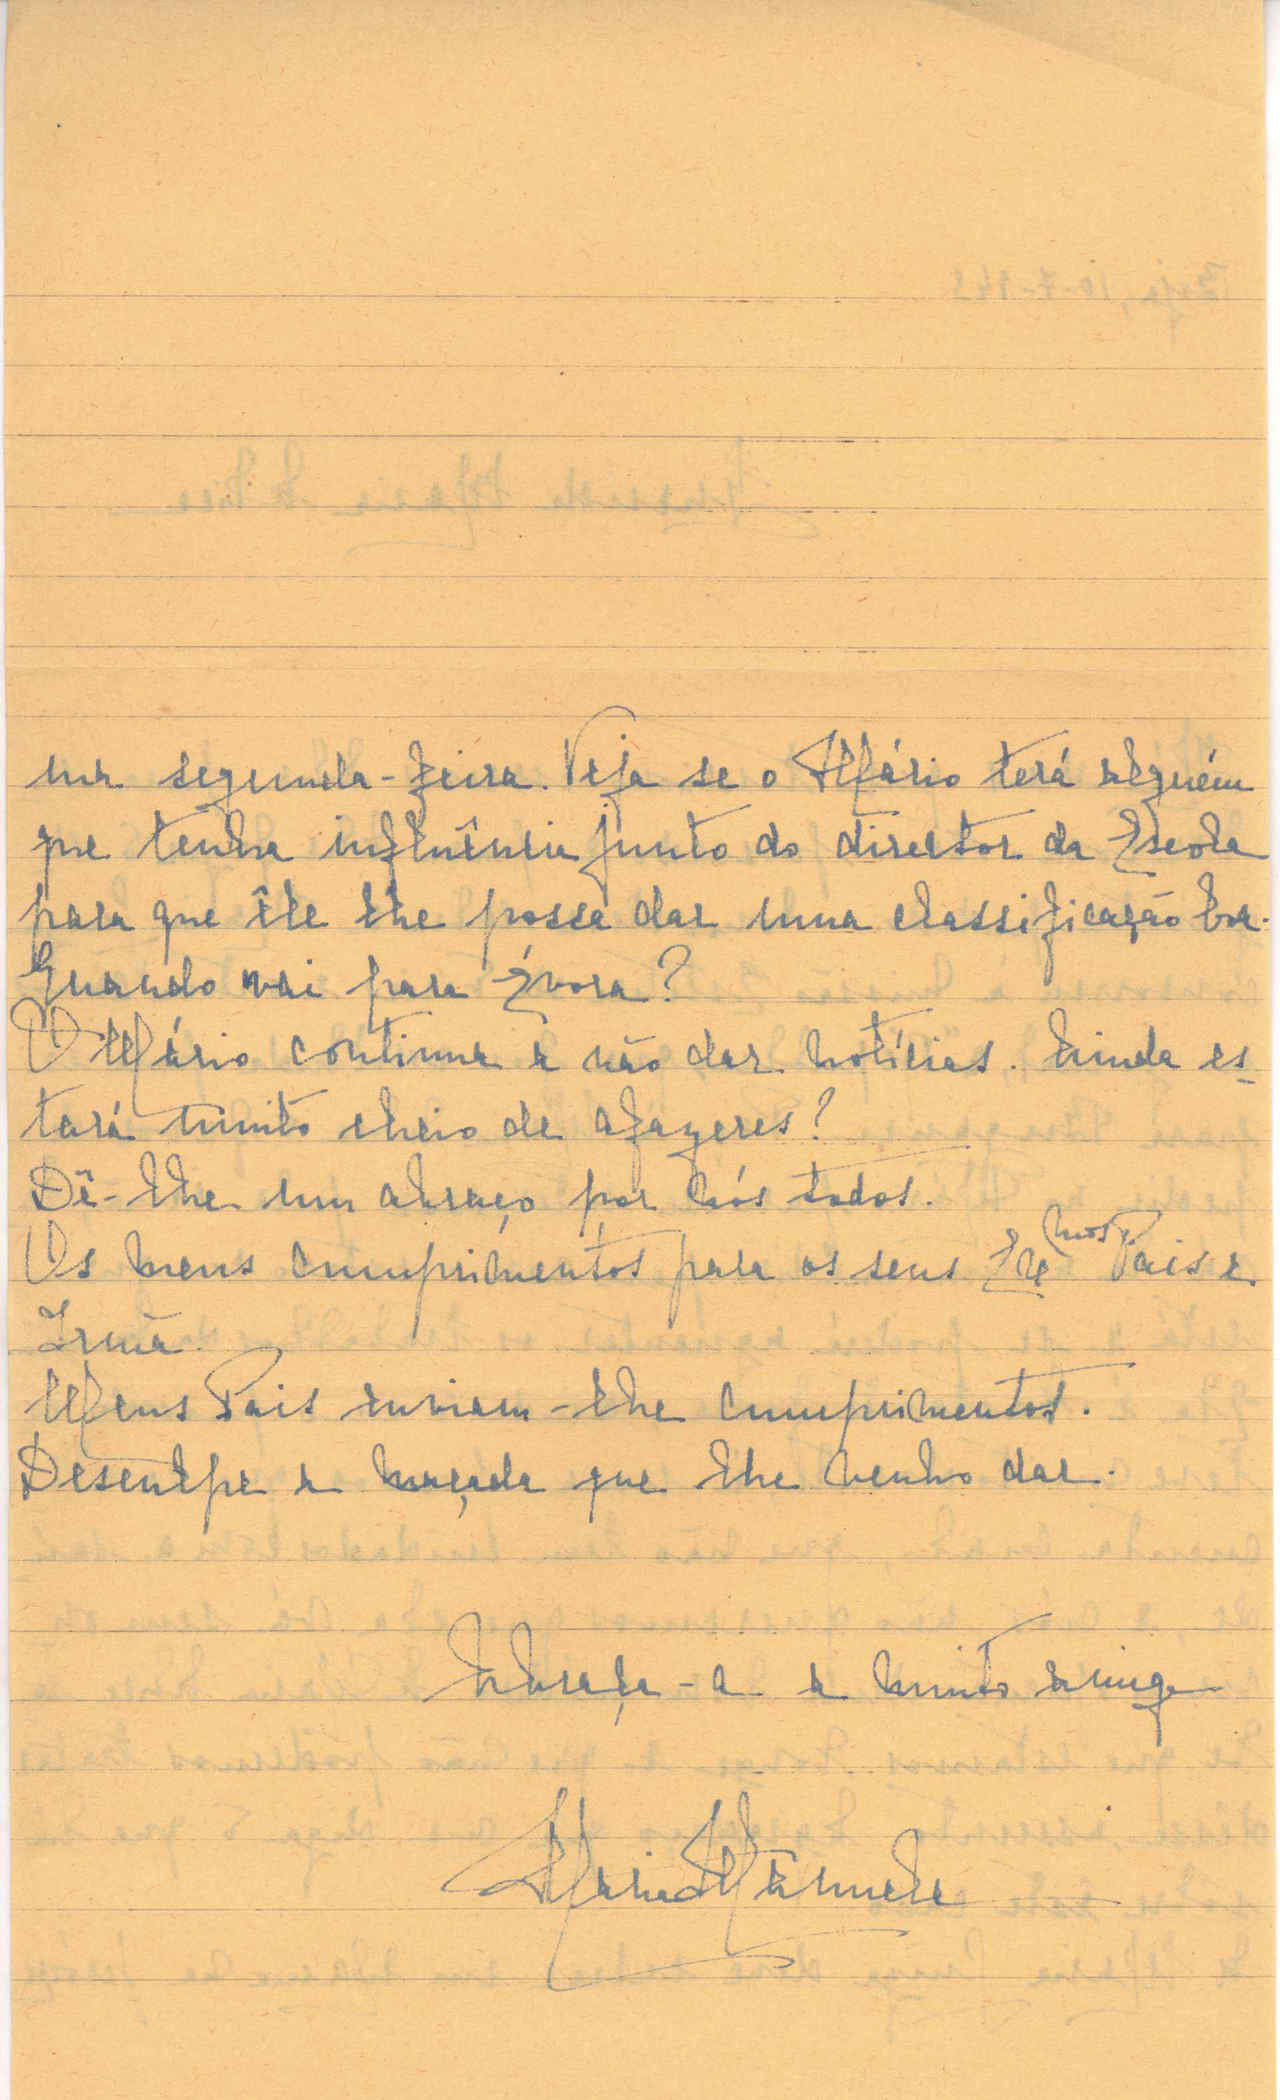 na segunda-feira. Veja se o Mário terá alguém
que tenha influência junto do director da Escola
para que êle lhe possa dar uma classificação boa.
Quando vai para Évora?
O Mário continua a não dar notícias. Ainda es-
tará muito cheio de afazeres?
Dê-lhe um abraço por nós todos.
Os meus cumprimentos para os seus Exmos Pais e
Irmã.
Meus Pais enviam-lhe cumprimentos.
Desculpe a maçada que lhe venho dar.
Abraça-a a muito amiga
Maria Manuela